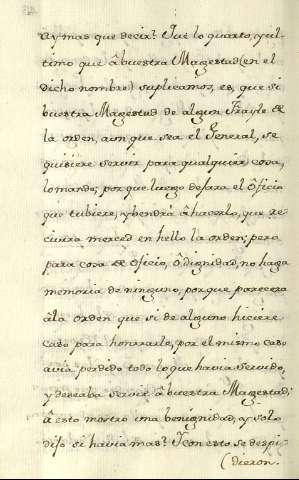 ay mas que decir? Fue lo quarto, y ul-
timo que â buestra Magestad (en el
dicho nombre) suplicamos, es, que si
buestra Magestad de algun Frayle de
la orden, aun que sea el General, se
quisiere servir para qualquier cosa,
lo mande; porque luego dejara el Oficio
que tubiere, y bendrá â hacerlo, que re-
civira merced en hello la orden; pero
para cosa de Oficio, ô dignidad, no haga
memoria de ninguno, porque parecera
âla orden que si de alguno hiciere
caso para honrarle, por el mismo caso
avia perdido todo lo que havia servido,
y deseaba servir â buestra Magestad;
â esto mostro una benignidad, y solo
dijo si havia mas? Y con esto se despi-
(dieron.